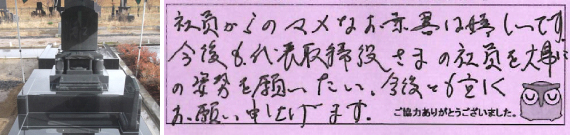 社員からのマメなお言葉は嬉しいです。
今後も代表取締役さまの社員を大事に
の姿勢を願いたい、今後とも宜しく
お願い申上げます。
ご協力ありがとうございました。